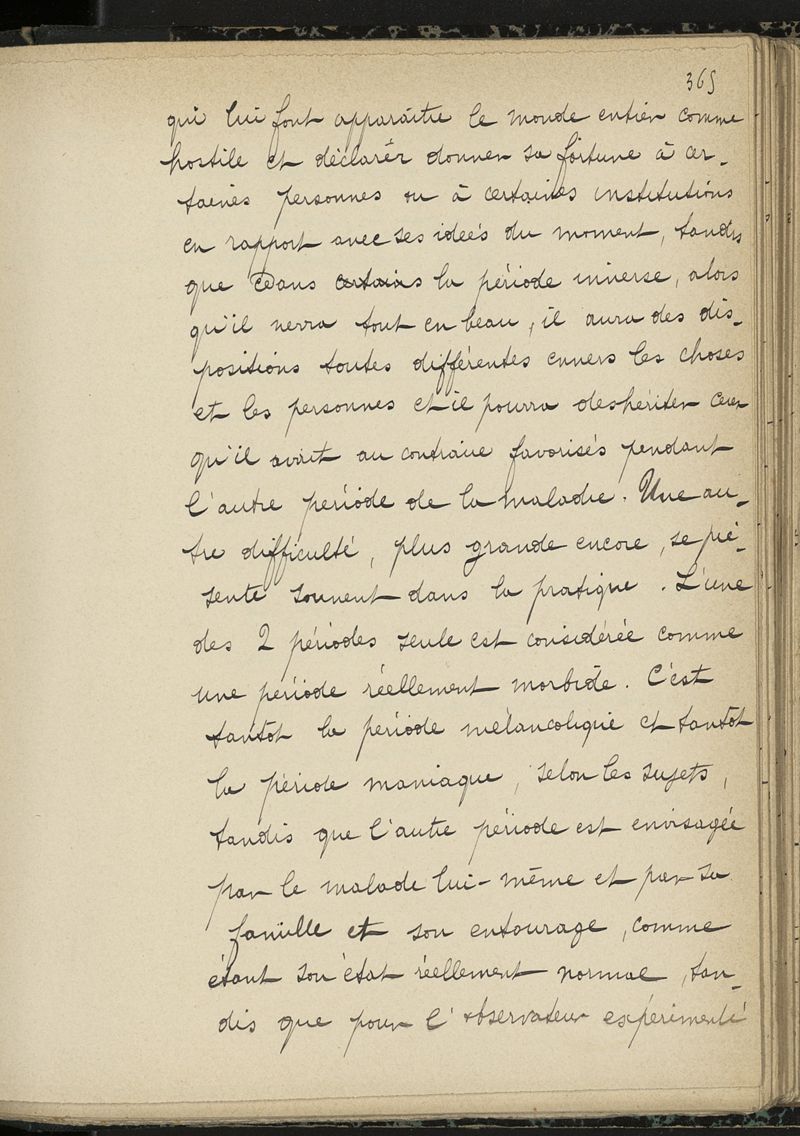 365
qui lui font apparaître le monde entier comme
hostile et déclarer donner sa fortune à cer-
taines personnes ou à certaines institutions
en rapport avec ses idées du moment, tandis
que dans certains la période inverse, alors
qu'il verra tout en beau, il aura des dis-
positions toutes différentes envers les choses
et les personnes et il pourra deshériter ceux
qu'il avait au contraire favorisés pendant
l'autre période de la maladie. Une au-
tre difficulté, plus grande encore, se pré-
sente souvent dans la pratique. L'une
des 2 périodes seule est considérée comme
une période réellement morbide. C'est
tantôt la période mélancolique et tantôt
la période maniaque, selon les sujets,
tandis que l'autre période est envisagée
par le malade lui-même et par sa
famille et son entourage, comme
étant son état réellement normal, tan-
dis que pour l'observateur expérimenté